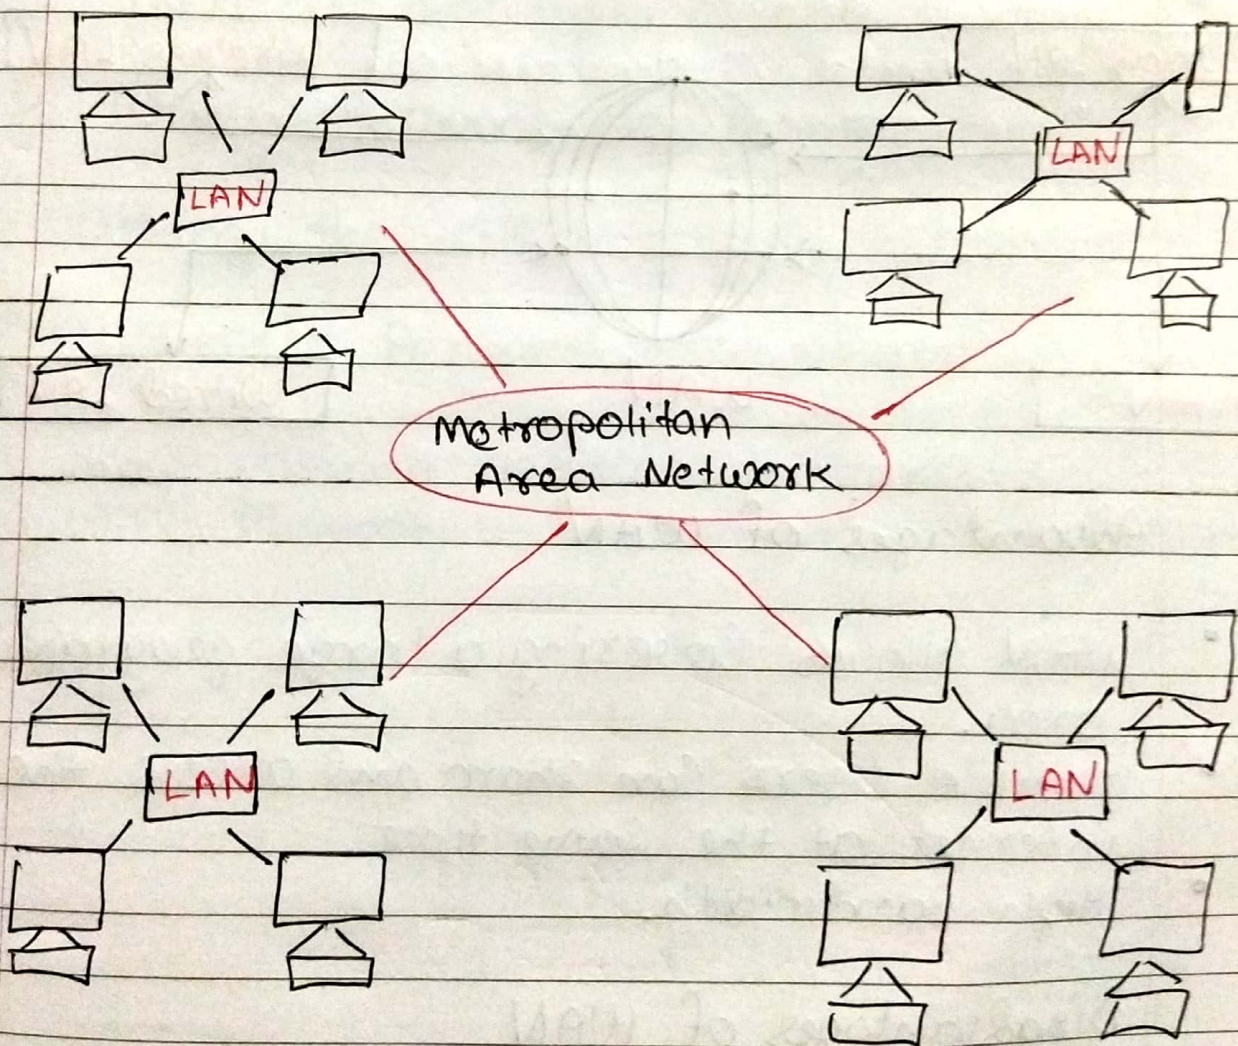 LAN
LAN
Metropolitan
Area Network
LAN
LAN